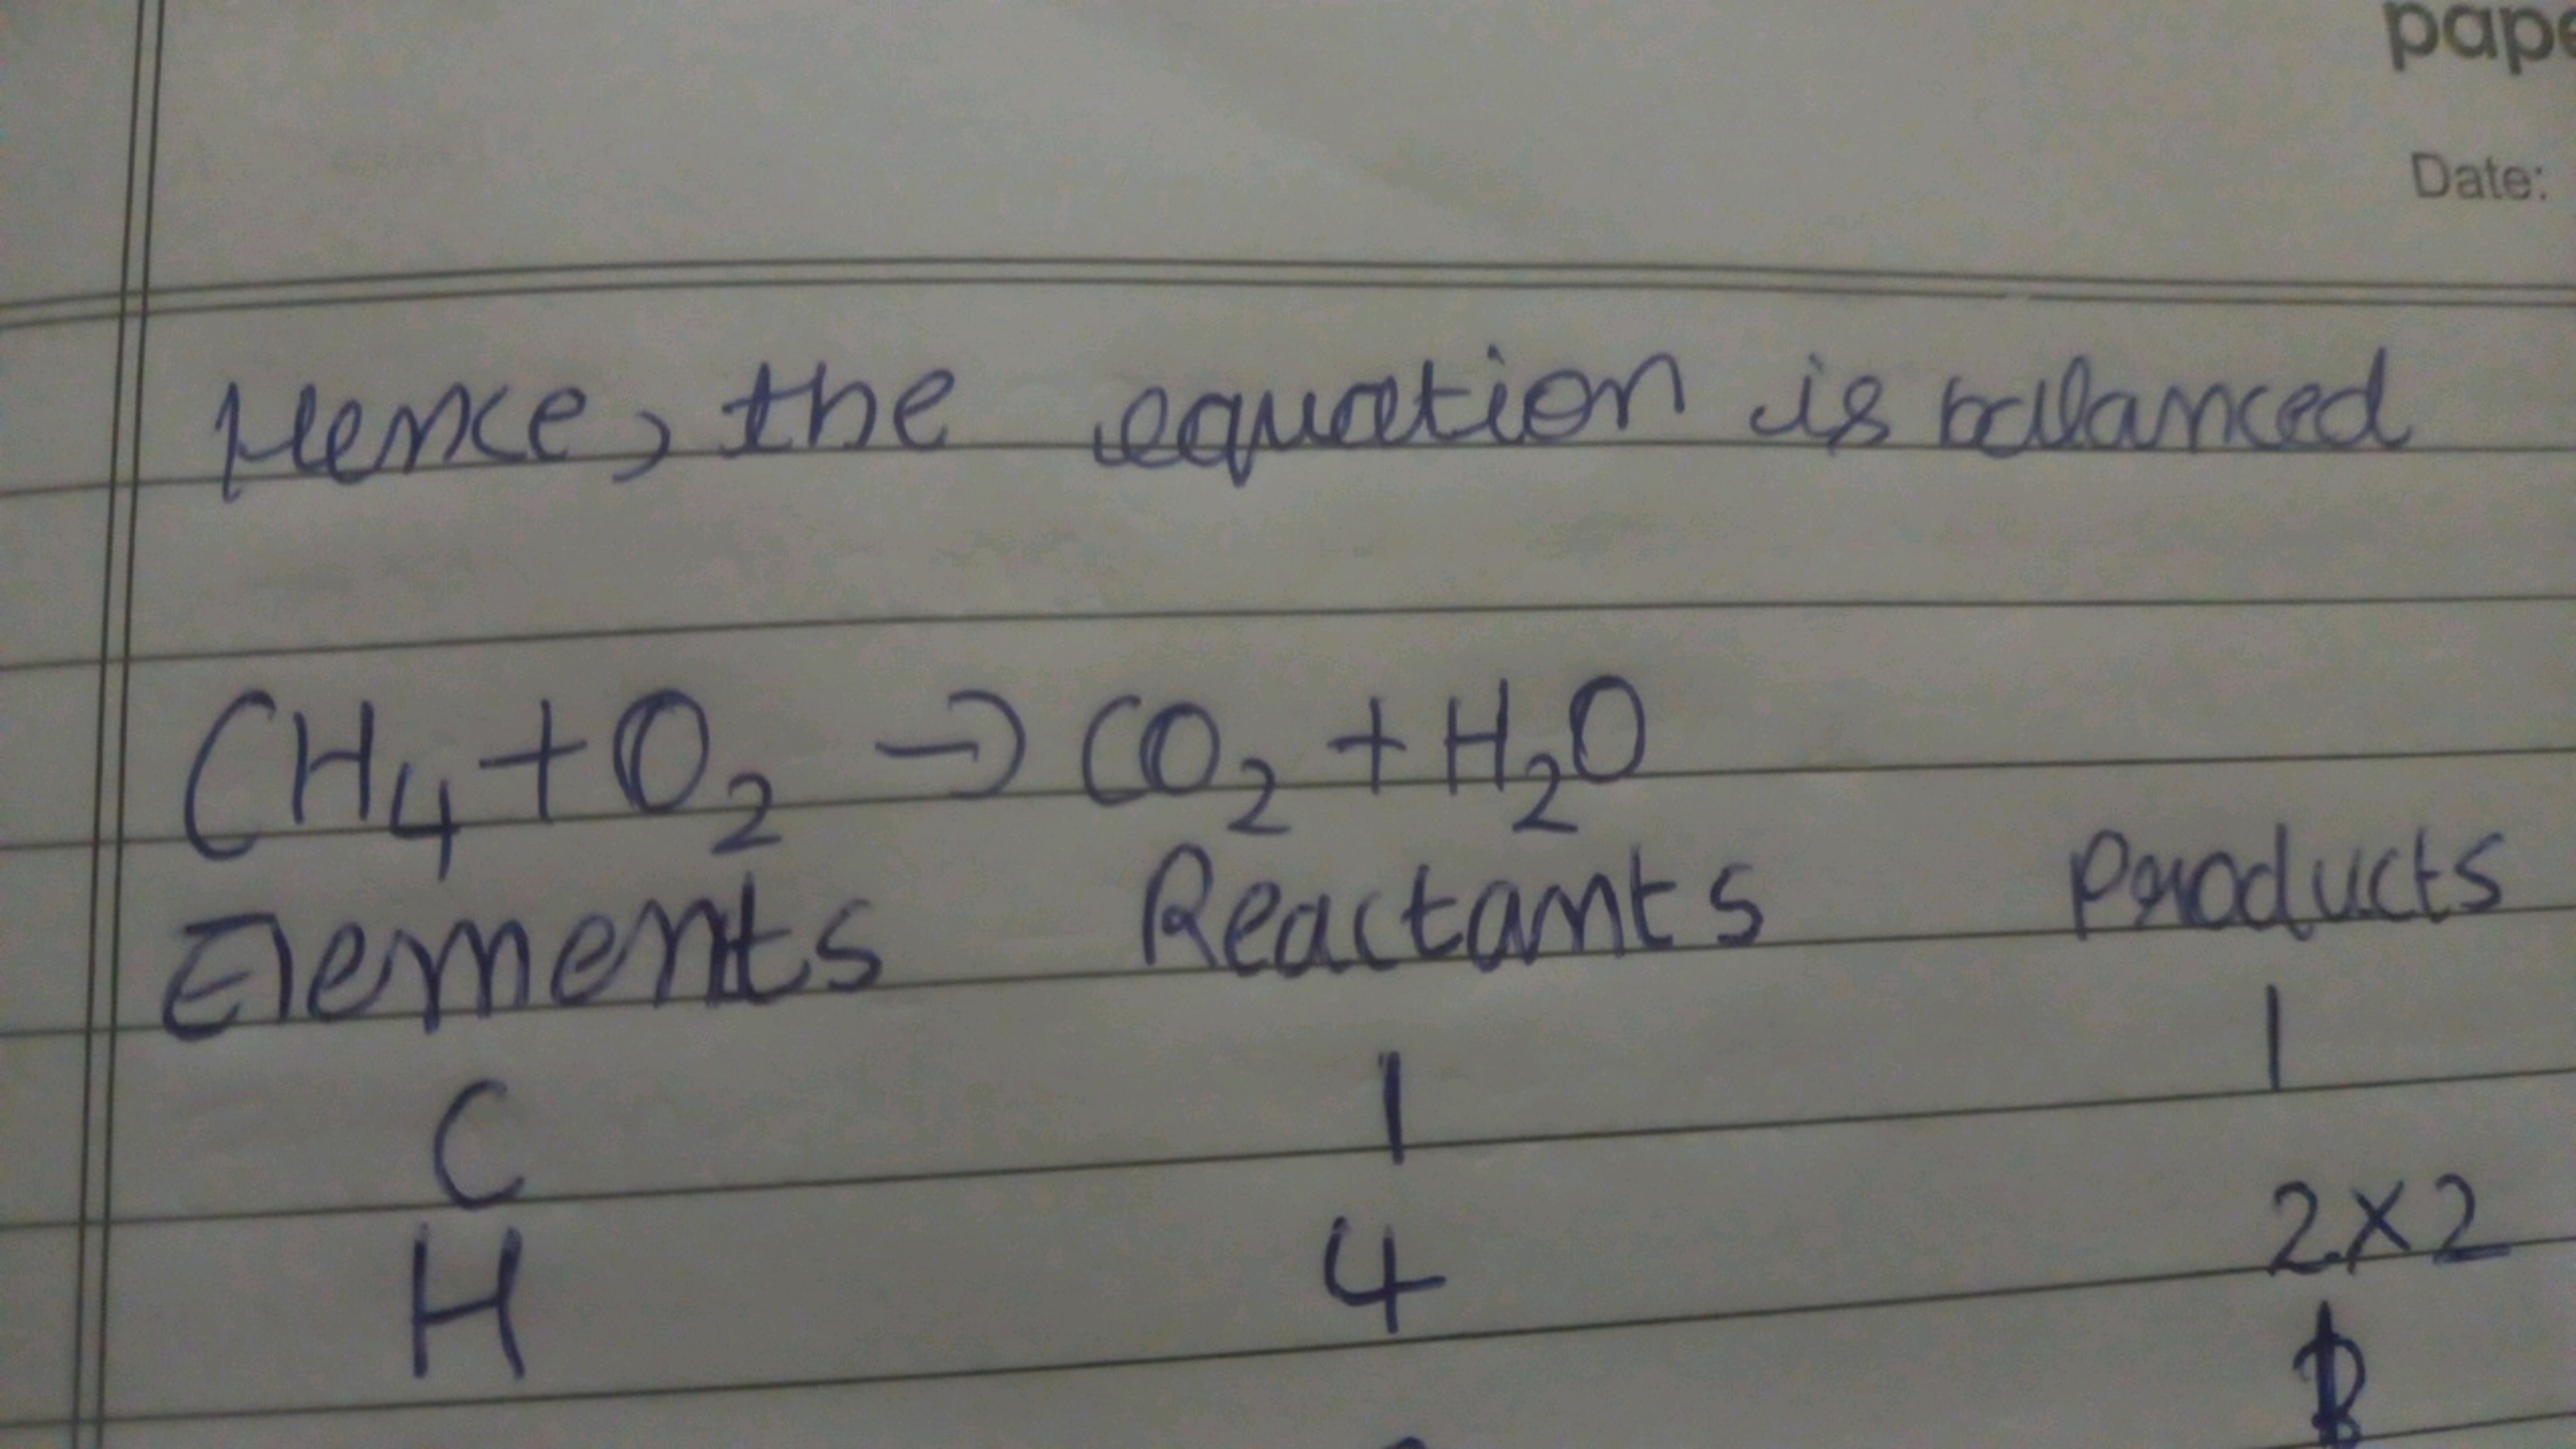 pape
Date:
Hence, the equation is balanced
CH₄ + O₂ → CO₂ + H₂O
Elements Reactants Products
C 1 1
H 4 2×2